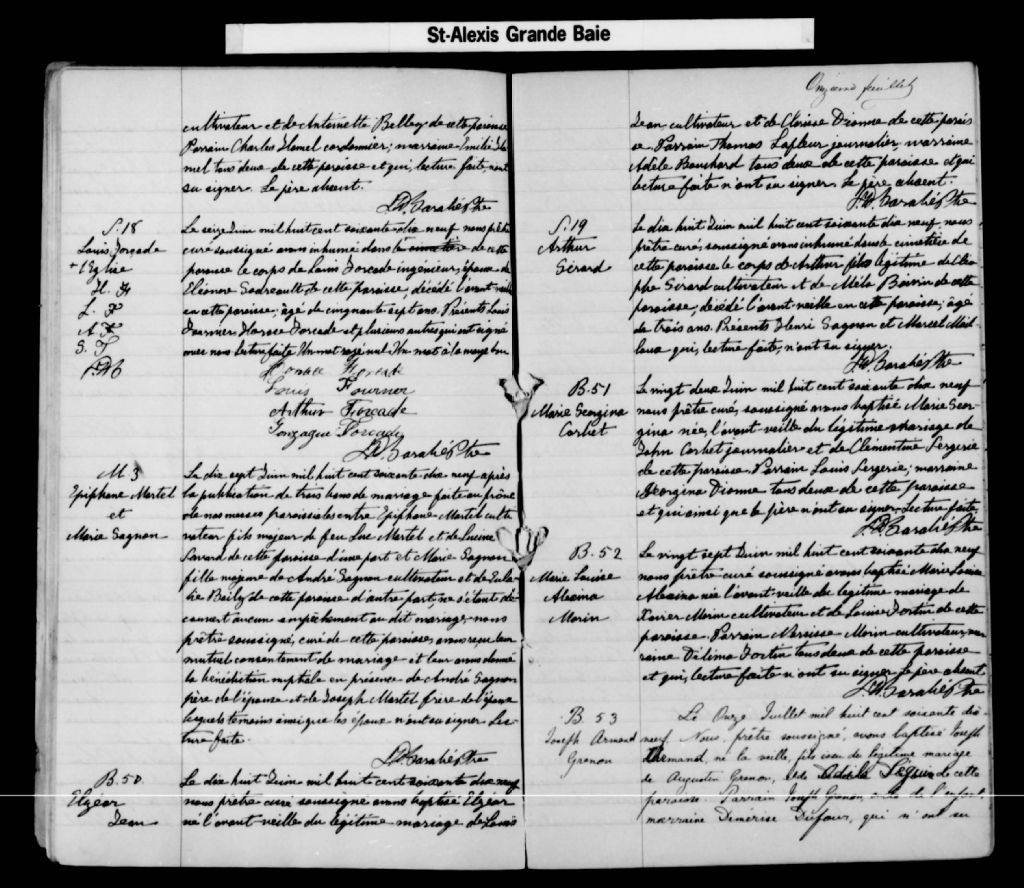 St-Alexis Grande Baie
cultivateur et de Antoinette Belley de cette paroisse
Parrain Charles Hamel cordonnier; marraine Emilie Ha
mel tous deux de cette paroisse et qui, lecture faite, n'ont
su signer. Le père absent.
Ptre
S. 18
Louis Forcade
+ l'Eglise
H. F
L. F
A. F
G. F
Le seize Juin mil huit cent soixante-dix neuf nous prêtre
curé soussigné avons inhumé dans le cimetière de cette
paroisse le corps de Louis Forcade ingénieur, époux de
Eléonore Godreault, de cette paroisse, décédé l'avant veille
en cette paroisse; âgé de cinquante sept ans. Présents Louis
Fournier Horace Forcade et plusieurs autres qui ont signé
avec nous. Lecture faite Un mot rayé nul. Un mot à la marge bon
Horace Forcade
Louis Fournier
Arthur Forcade
Gonzague Forcade
Ptre
M 3
Epiphane Martel
et
Marie Gagnon
Le dix sept Juin mil huit cent soixante dix neuf après
la publication de trois bans de mariage faite au prône
de nos messes paroissiales entre Epiphane Martel culti
vateur fils majeur de feu Luc Martel et de Lucine
Savard de cette paroisse d'une part et Marie Gagnon
fille majeure de André Gagnon cultivateur et de Eula
lie Bailly de cette paroisse d'autre part; ne s'étant dé
couvert aucun empêchement au dit mariage, nous
prêtre soussigné, curé de cette paroisse, avons reçu leur
mutuel consentement de mariage et leur avons donné
la bénédiction nuptiale en présence de André Gagnon
père de l'épouse et de Joseph Martel frère de l'époux
lesquels témoins ainsi que les époux n'ont su signer Lec
ture faite.
Ptre
B. 50
Elzéar
Jean
Le dix huit Juin mil huit cent soixante dix neuf
nous prêtre curé soussigné avons baptisé Elzéar
né l'avant veille du légitime mariage de Louis
Onzième feuillet
Jean cultivateur et de Clarisse Dionne de cette parois
se. Parrain Thomas Lafleur journalier, marraine
Adèle Bouchard tous deux de cette paroisse et qui
lecture faite n'ont su signer. Le père absent.
Ptre
S. 19
Arthur
Girard
Le dix huit Juin mil huit cent soixante dix neuf nous
prêtre curé, soussigné avons inhumé dans le cimetière de
cette paroisse le corps de Arthur fils légitime de Cléo
phe Girard cultivateur et de Mélo Boivin de cette
paroisse, décédé l'avant veille en cette paroisse; âgé
de trois ans. Présents Henri Gagnon et Marcel Mail
loux qui, lecture faite, n'ont su signer.
Ptre
B. 51
Marie Georgina
Corbet
Le vingt deux Juin mil huit cent soixante dix neuf
nous prêtre curé, soussigné avons baptisé Marie Geor
gina née, l'avant-veille du légitime mariage de
John Corbet journalier et de Clémentine Lergerie
de cette paroisse. Parrain Louis Lergerie; marraine
Georgina Dionne tous deux de cette paroisse
et qui ainsi que le père n'ont su signer. Lecture faite
Ptre
B. 52
Marie Louise
Abaina
Morin
Le vingt sept Juin mil huit cent soixante dix neuf
nous prêtre curé soussigné avons baptisé Marie Louise
Abaina née l'avant veille du légitime mariage de
Xavier Morin cultivateur et de Louise Fortin de cette
paroisse. Parrain Narcisse Morin cultivateur, mar
raine Délima Fortin tous deux de cette paroisse
et qui, lecture faite n'ont su signer le père absent
Ptre
B. 53
Joseph Armand
Grenon
Le Onze Juillet mil huit cent soixante dix-
neuf. Nous, prêtre soussigné, avons baptisé Joseph
Armand, né la veille, fils issu du légitime mariage
de Augustin Grenon, et de Séguin de cette
paroisse. Parrain Joseph Grenon, de l'enfant,
marraine Démérise Dufour, qui n'ont su